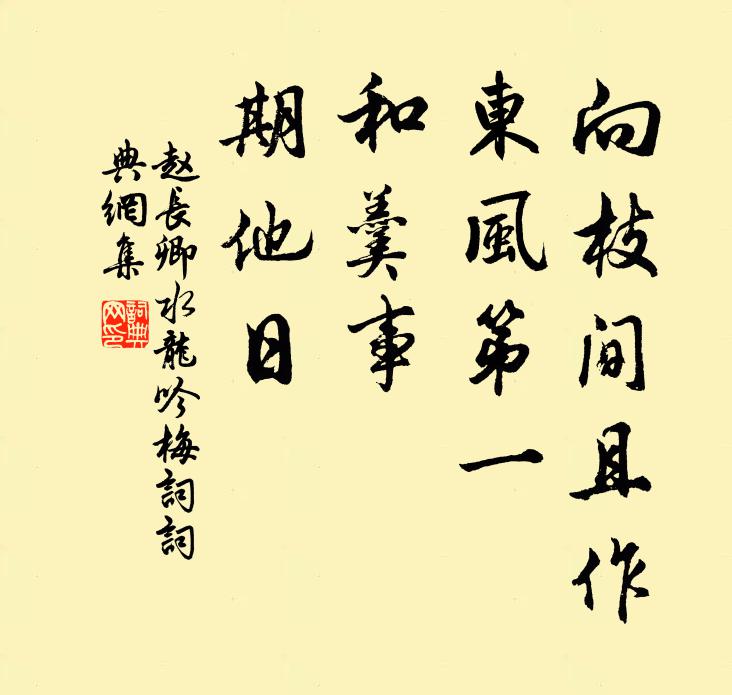 向枝間且作
東風第一
和羹事
期他日
赵長卿水龍吟梅詞詞
典網集
詞典網印